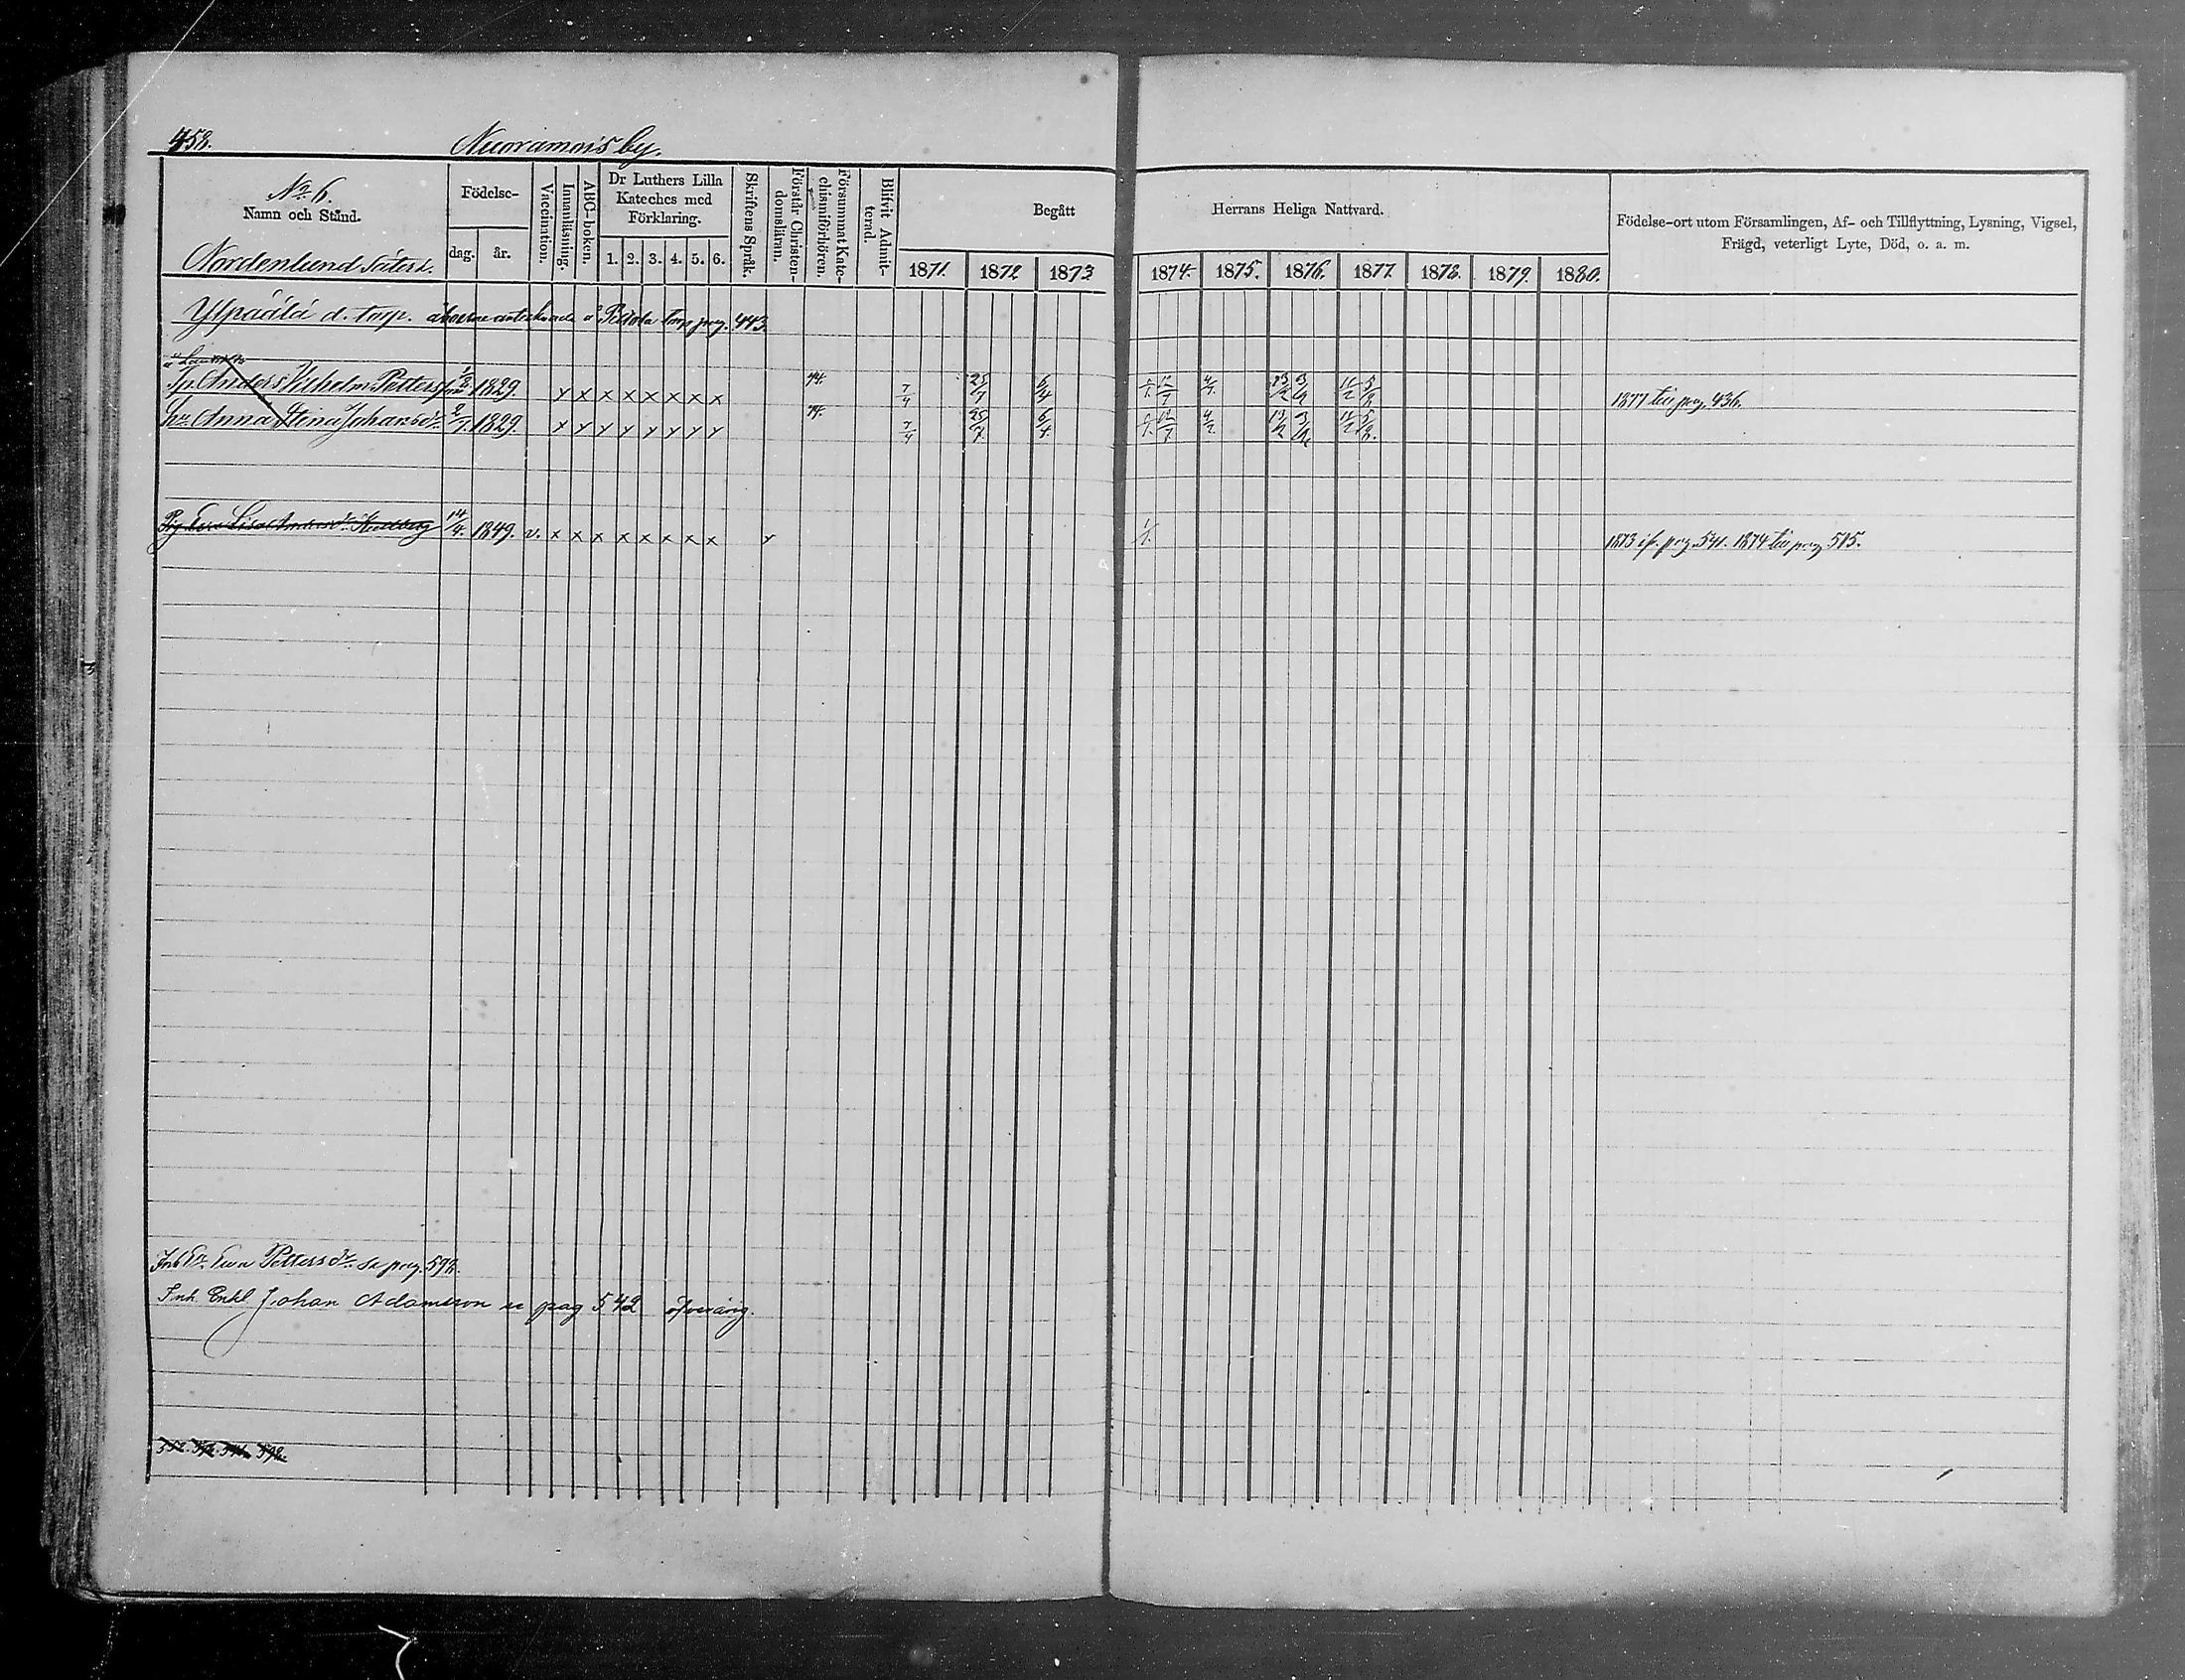 458.
Nuoramois by.
No 6.
Namn och Stånd.
Födelse-
dag.
år.
Vaccination.
Innanläsning.
ABC-boken.
Dr Luthers Lilla
Kateches med
Förklaring.
1. 2. 3. 4. 5. 6.
Skriftens Språk.
Förstår Christen-
domsläran.
Försummat Kate-
chismiförhören.
Blifvit Admit-
terad.
Begått
Herrans Heliga Nattvard.
1871. 1872 1873 1874. 1875. 1876. 1877. 1878. 1879. 1880.
Födelse-ort utom Församlingen, Af- och Tillflyttning, Lysning, Vigsel,
Frägd, veterligt Lyte, Död, o. a. m.
Nordenlund Säteri.
Ylpäälä d. torp. torp pag. 443.
Anders Vilhelm Petters 1829. x x x x x x x x 74. 7/4 25/7 6/4 1877 till pag. 436.
Anna Stina Johansdr 2/7. 1829. x x y y y y y y 74. 7/4 25/7 6/4
Lisa Andersdr 14/4. 1849. v. x x x x x x x x x 1/1. 1873 ifr. pag. 541. 1874 till pag 515.
Inh. Eva Pettersdr se pag. 592.
Inh. Enkl Johan Adamsson se pag 542